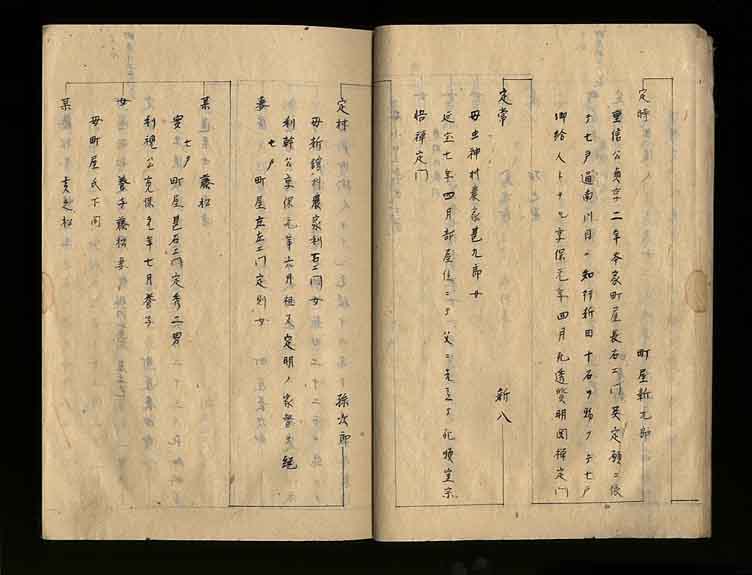 定時 町屋新九郎
重信公貞享二年本家町屋長右エ門英定願ニ依
于七戸通南川目ノ知行新田十石ヲ賜フ于七戸
御給人トナル享保元年四月死透賢明図禅定門
定常 新八
母虫神村農家甚九郎女
延宝七年四月部屋住ニテ父ニ先立テ死頓宝宗
悟禅定門
定村 孫次郎
母新舘村農家利右エ門女
利幹公享保元年六月祖父定明ノ家督ヲ絶
妻七戸町屋庄左エ門定則女
某 藤松
実七戸町屋甚右エ門定秀二男
利視公寛保元年七月養子
女 養子藤松妻
母町屋氏下同
某 吉之松